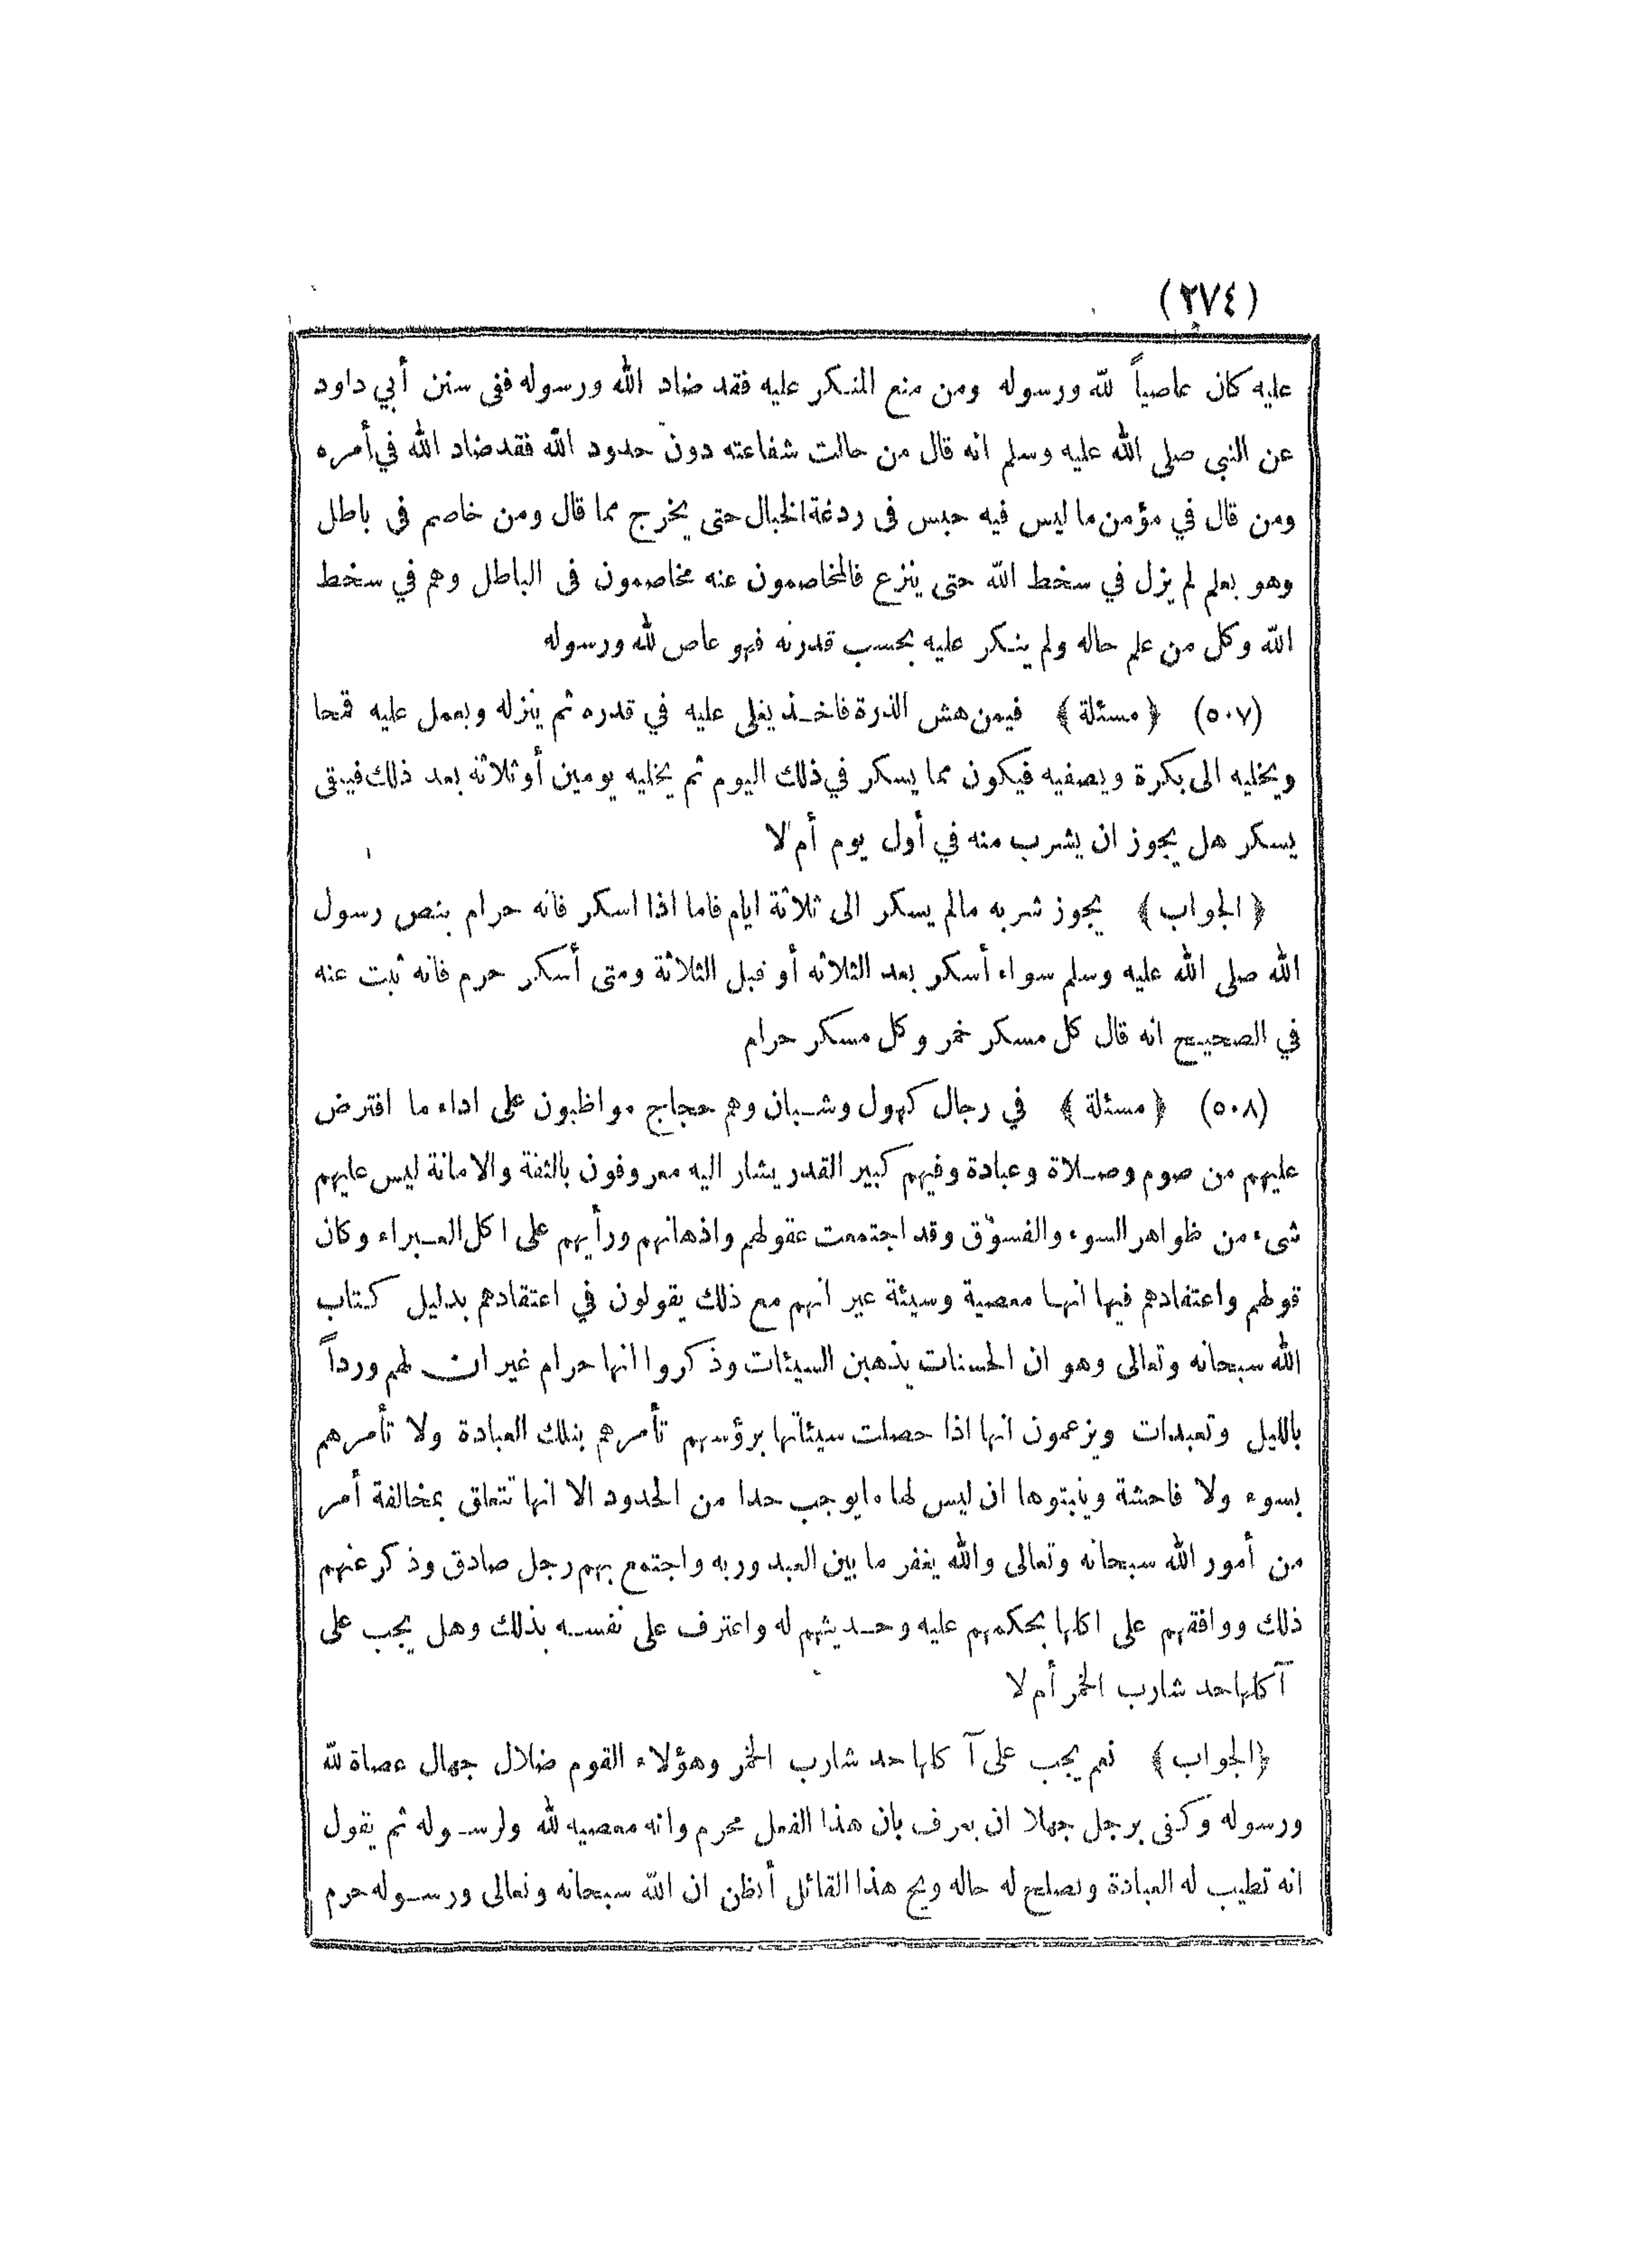 (٢٧٤)
عليه كان عاصياً لله ورسوله ومن منع المنكر عليه فقد ضاد الله ورسوله ففى سنن أبي داود
عن النبي صلى الله عليه وسلم انه قال من حالت شفاعته دون حدود الله فقد ضاد الله في أمره
ومن قال في مؤمن ما ليس فيه حبس فى ردغة الخبال حتى يخرج مما قال ومن خاصم فى باطل
وهو يعلم لم يزل في سخط الله حتى ينزع فالمخاصمون عنه مخاصمون فى الباطل وهم في سخط
الله وكل من علم حاله ولم ينكر عليه بحسب قدرته فهو عاص لله ورسوله
(٥٠٧) ﴿ مسئلة ﴾ فيمن هش الذرة فاخذ يغلى عليه في قدره ثم ينزله ويعمل عليه قمحا
ويخليه الى بكرة ويصفيه فيكون مما يسكر في ذلك اليوم ثم يخليه يومين أو ثلاثة بعد ذلك فيبقى
يسكر هل يجوز ان يشرب منه في أول يوم أم لا
﴿ الجواب ﴾ يجوز شربه مالم يسكر الى ثلاثة ايام فاما اذا اسكر فانه حرام بنص رسول
الله صلى الله عليه وسلم سواء أسكر بعد الثلاثة أو قبل الثلاثة ومتى أسكر حرم فانه ثبت عنه
في الصحيح انه قال كل مسكر خمر وكل مسكر حرام
(٥٠٨) ﴿ مسئلة ﴾ في رجال كهول وشبان وهم حجاج مواظبون على اداء ما افترض
عليهم من صوم وصلاة وعبادة وفيهم كبير القدر يشار اليه معروفون بالثقة والامانة ليس عليهم
شىء من ظواهر السوء والفسوق وقد اجتمعت عقولهم واذهانهم ورأيهم على اكل الغبراء وكان
قولهم واعتقادهم فيها انها معصية وسيئة غير انهم مع ذلك يقولون في اعتقادهم بدليل كتاب
الله سبحانه وتعالى وهو ان الحسنات يذهبن السيئات وذكروا انها حرام غير ان لهم ورداً
بالليل وتعبدات ويزعمون انها اذا حصلت سيئاتها برؤسهم تأمرهم بتلك العبادة ولا تأمرهم
بسوء ولا فاحشة ويثبتوها ان ليس لها ما يوجب حدا من الحدود الا انها تتعلق بمخالفة أمر
من أمور الله سبحانه وتعالى والله يغفر ما بين العبد وربه واجتمع بهم رجل صادق وذكر عنهم
ذلك ووافقهم على اكلها بحكمهم عليه وحديثهم له واعترف على نفسه بذلك وهل يجب على
آكلها حد شارب الخمر أم لا
﴿ الجواب ﴾ نعم يجب على آكلها حد شارب الخمر وهؤلاء القوم ضلال جهال عصاة لله
ورسوله وكفى برجل جهلا ان يعرف بان هذا الفعل محرم وانه معصية لله ولرسوله ثم يقول
انه تطيب له العبادة وتصلح له حاله ويح هذا القائل أيظن ان الله سبحانه وتعالى ورسوله حرم